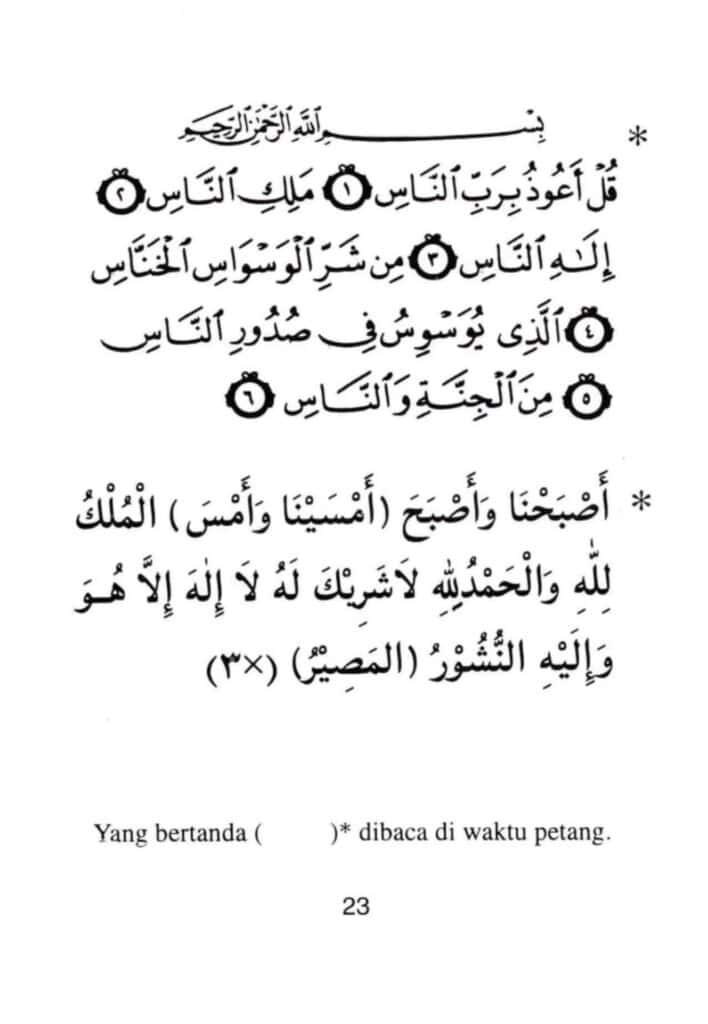 * بِسْمِ اللَّهِ الرَّحْمَٰنِ الرَّحِيمِ
قُلْ أَعُوذُ بِرَبِّ ٱلنَّاسِ ١ مَلِكِ ٱلنَّاسِ ٢
إِلَٰهِ ٱلنَّاسِ ٣ مِن شَرِّ ٱلْوَسْوَاسِ ٱلْخَنَّاسِ
٤ ٱلَّذِى يُوَسْوِسُ فِى صُدُورِ ٱلنَّاسِ
٥ مِنَ ٱلْجِنَّةِ وَٱلنَّاسِ ٦
* أَصْبَحْنَا وَأَصْبَحَ (أَمْسَيْنَا وَأَمْسَ) الْمُلْكُ
لِلّٰهِ وَالْحَمْدُلِلّٰهِ لَاشَرِيْكَ لَهُ لَا إِلٰهَ إِلَّا هُوَ
وَإِلَيْهِ النُّشُوْرُ (المَصِيْرُ) (×٣)
Yang bertanda ( )* dibaca di waktu petang.
23